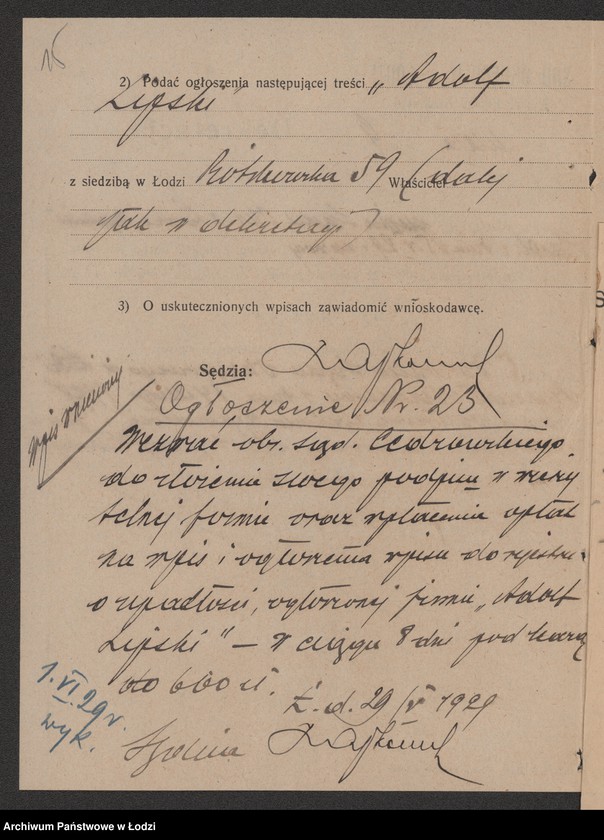 15
2) Podać ogłoszenia następującej treści „Adolf
Lipski"
z siedzibą w Łodzi Piotrkowska 59 Właściciel (dalej
jak w
3) O uskutecznionych wpisach zawiadomić wnioskodawcę.
Sędzia:
Ogłoszenie Nr. 23
wpis wniesiony
Wezwać obr. sąd. Cedrowskiego
do złożenia swego podpisu w wierzy
telnej formie oraz wpłacenia opłat
na wpis i ogłoszenia wpisu do rejestru
o upadłości, ogłoszonej firmie „Adolf
Lipski" – w ciągu 8 dni pod karą
do 600 zł.
Ł. d. 29/V 1929
1.VI.29 r.
wyk.